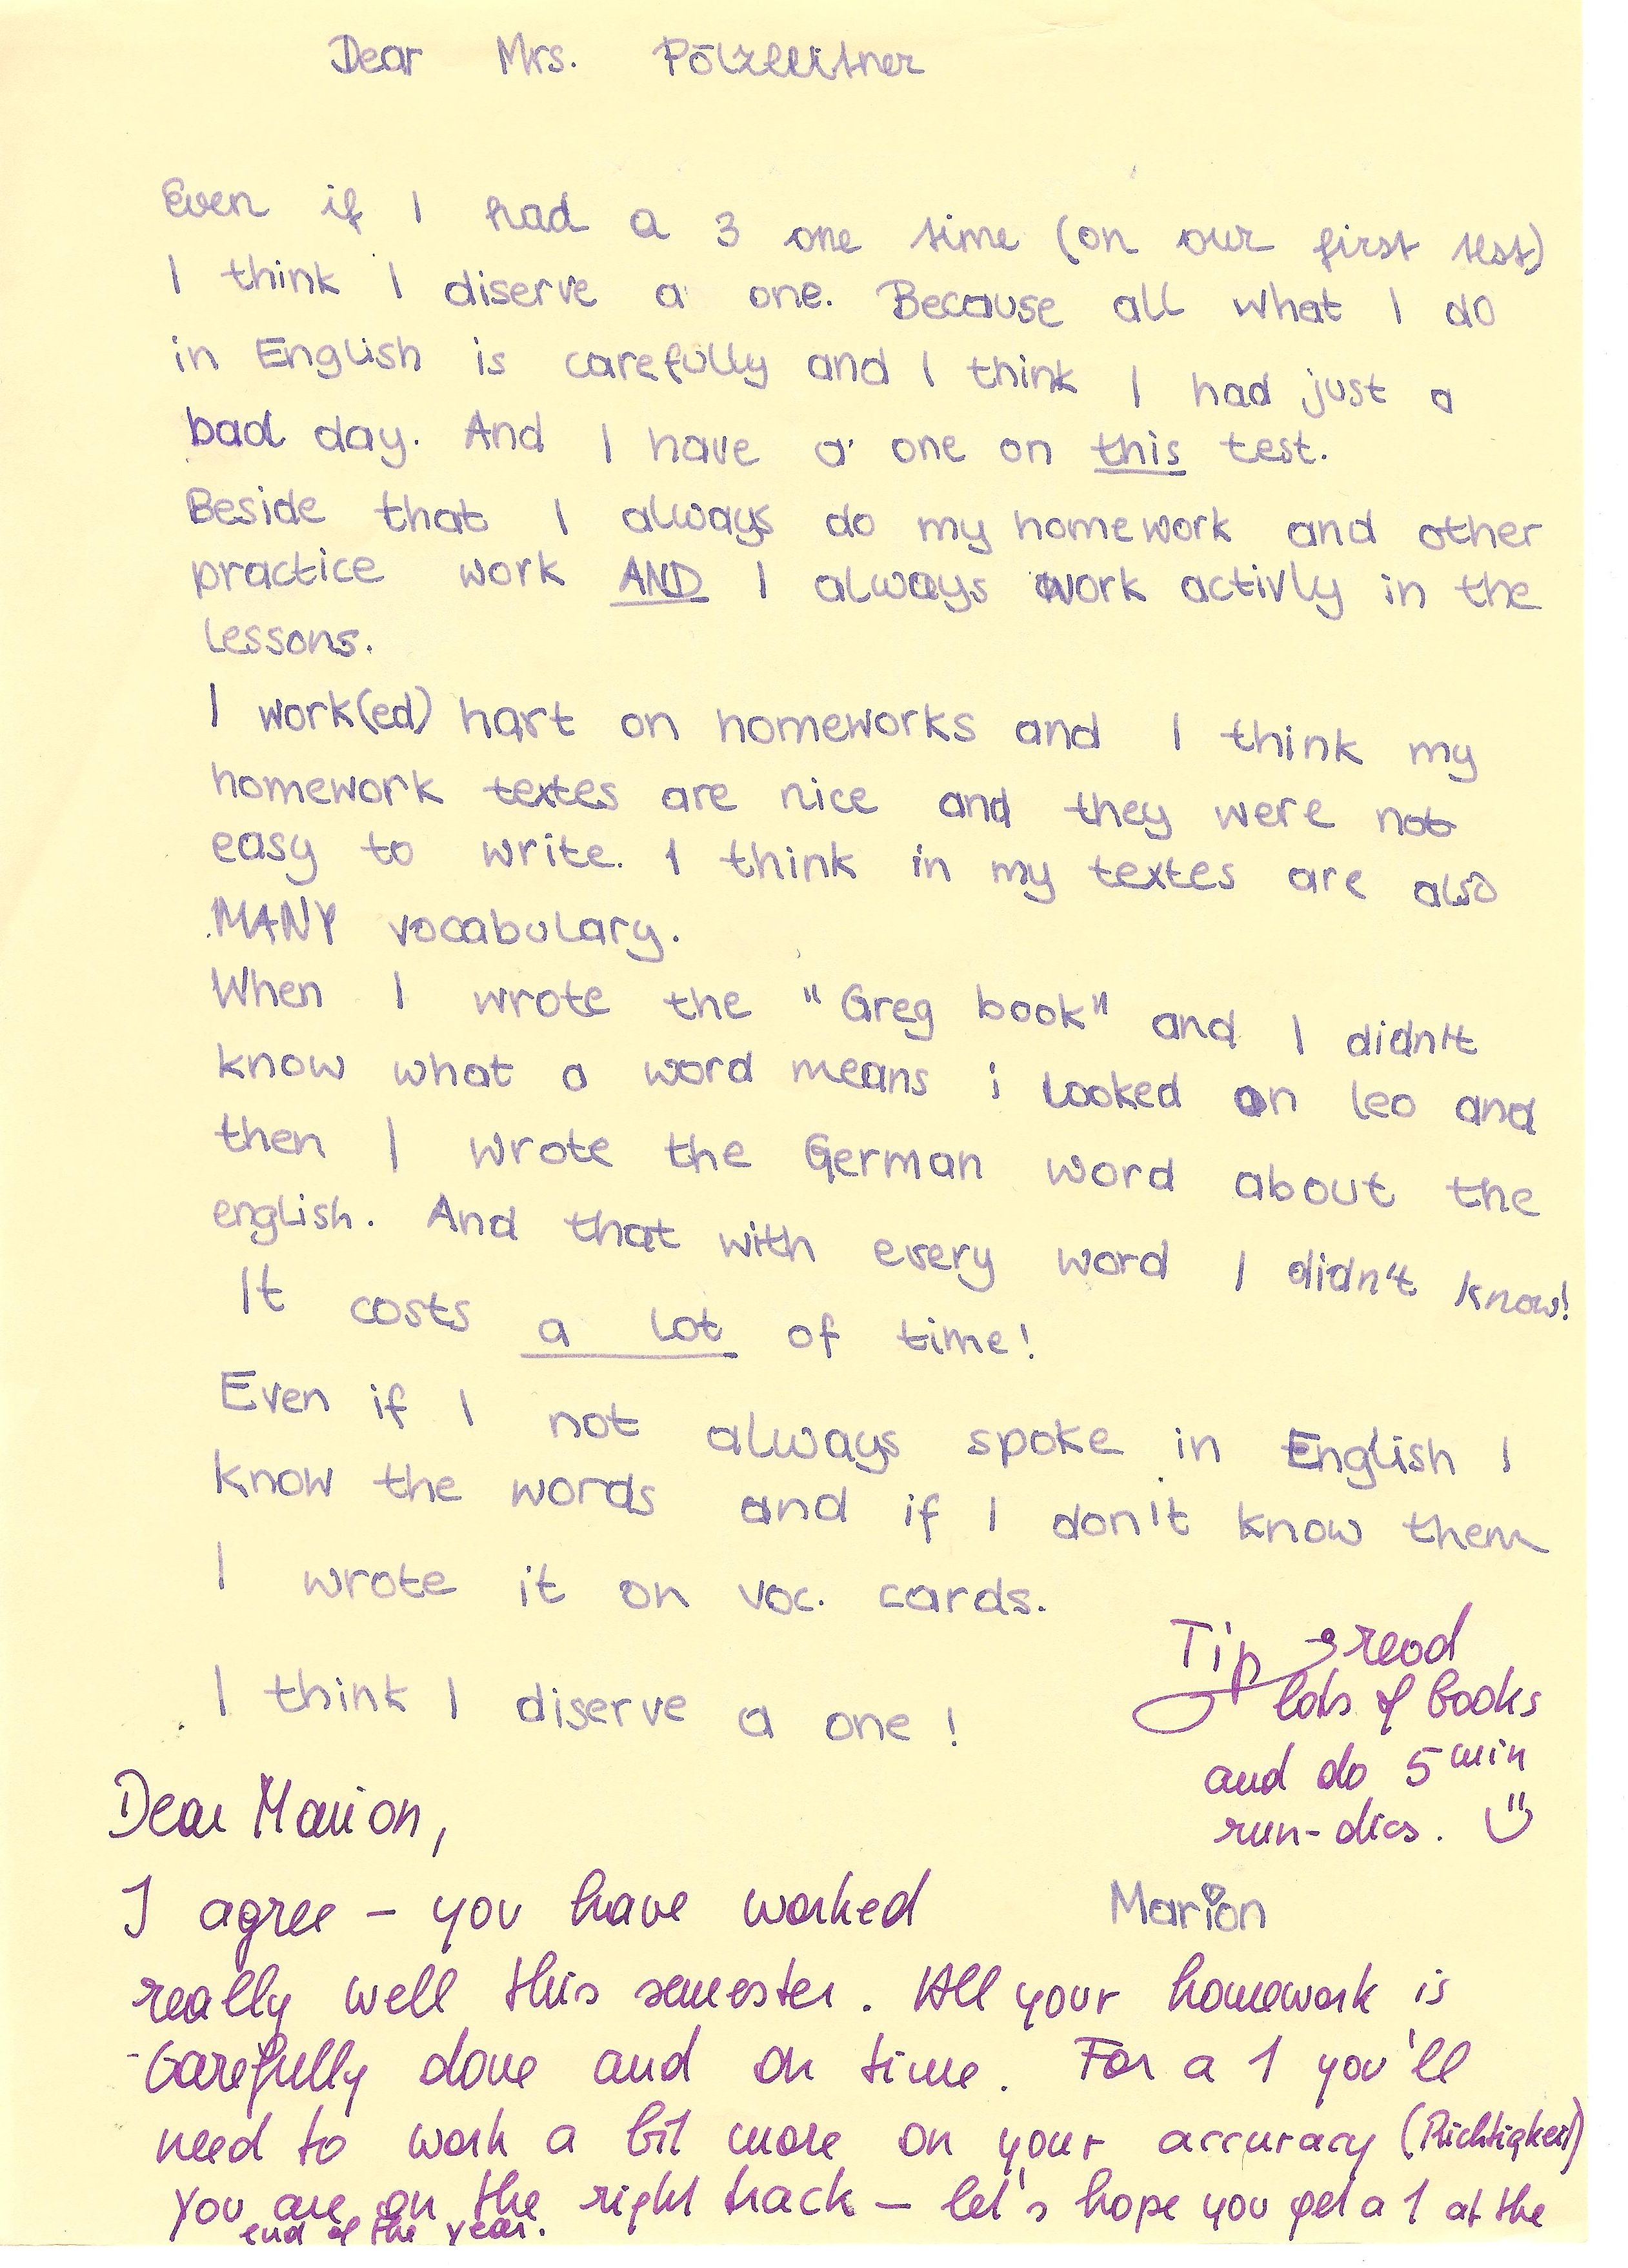 Dear Mrs. Pölzleitner
Even if I had a 3 one time (on our first test)
I think I diserve a one. Because all what I do
in English is carefully and I think I had just a
bad day. And I have a one on this test.
Beside that I always do my homework and other
practice work AND I always work activly in the
lessons.
I work(ed) hart on homeworks and I think my
homework textes are nice and they were not
easy to write. I think in my textes are also
MANY vocabulary.
When I wrote the "Greg book" and I didn't
know what a word means i looked on leo and
then I wrote the German word about the
english. And that with every word I didn't know!
It costs a lot of time!
Even if I not always spoke in English I
know the words and if I don't know them
I wrote it on voc. cards.
I think I diserve a one!
Tip → read
lots of books
and do 5 min
run-dics.
Marion
Dear Marion,
I agree – you have worked
really well this semester. All your homework is
carefully done and on time. For a 1 you'll
need to work a bit more on your accuracy (Richtigkeit)
You are on the right track – let's hope you get a 1 at the
end of the year.